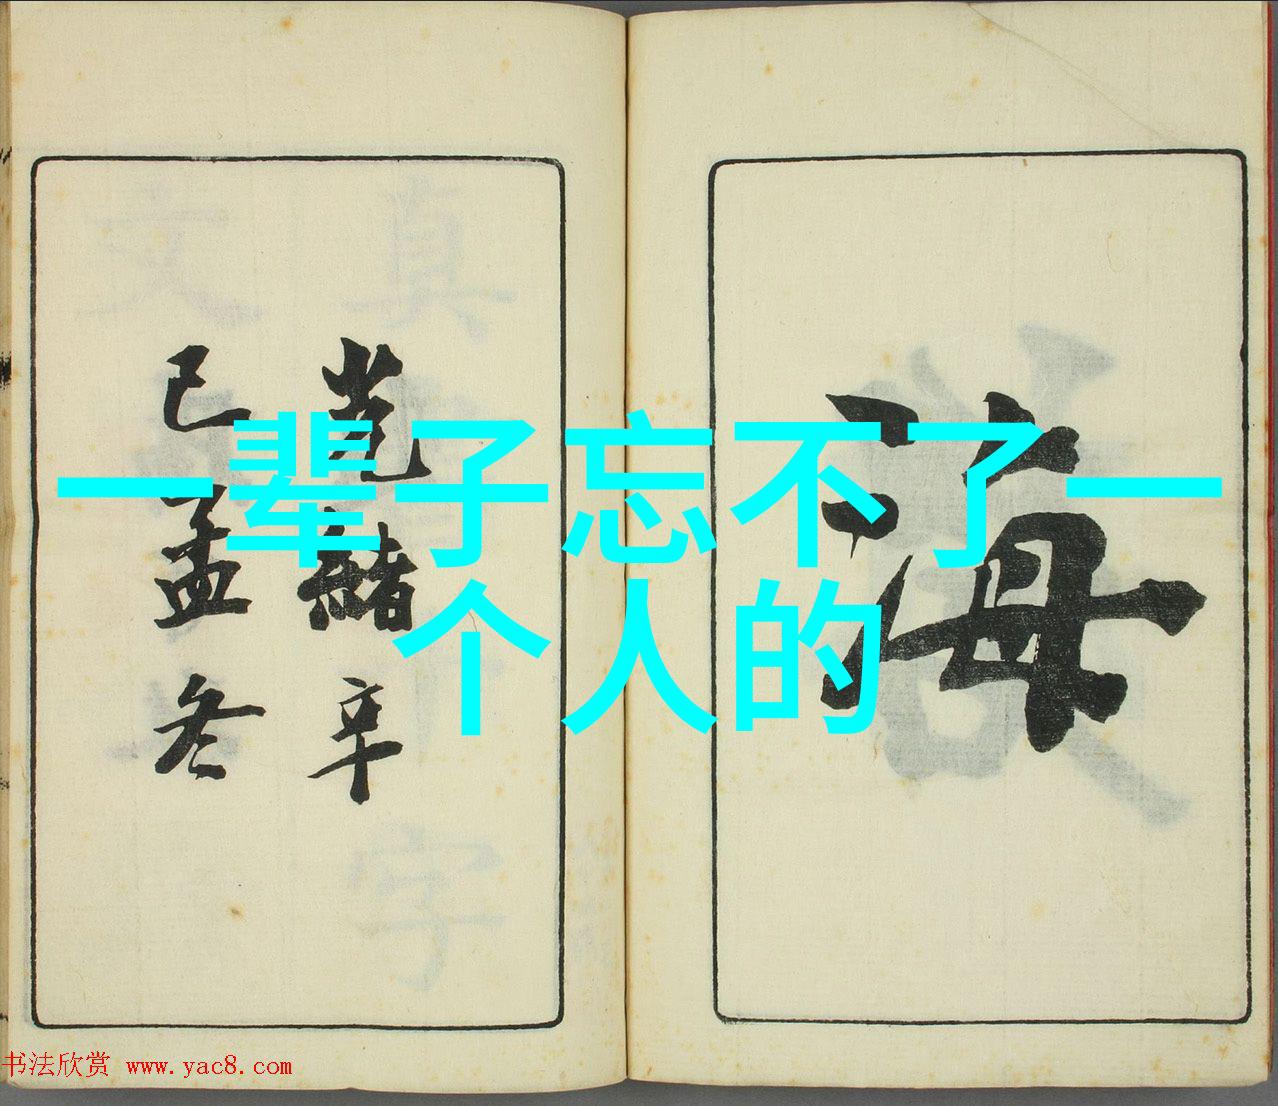 一辈子忘不了一
个人的
海
光緒辛
已孟冬
书法欣赏 www.yac8.com